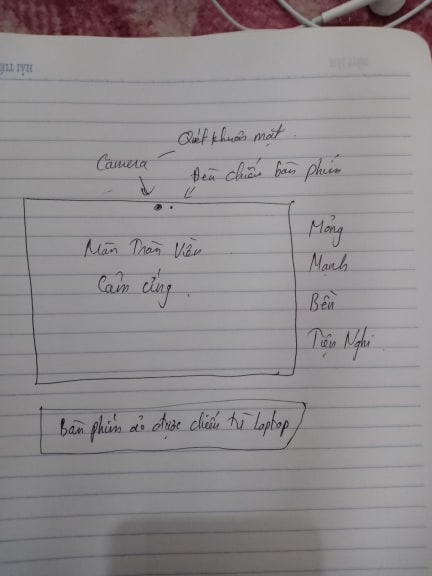 HẢI TIẾN
Quét khuôn mặt.
Camera
Đèn chiếu bàn phím
Màn Tràn Viền
Cảm ứng.
Mỏng
Mạnh
Bền
Tiện Nghi.
Bàn phím ảo được chiếu từ laptop